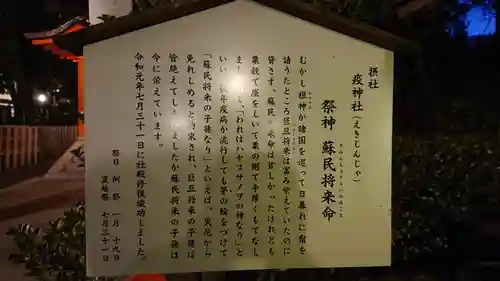 摂社
疫神社（えきじんじゃ）
祭神　蘇民将来命
そみんしょうらいのみこと
むかし祖神が諸国を巡って日暮れに宿を
請うたところ巨旦将来は富み栄えていたのに
貸さず、蘇民将来命は貧しかったけれども
粟殻で座をしいて粟の飯で手厚くもてなし
ました。「われはハヤスサノヲの神なり」と
いい、後年疫病が流行しても茅の輪をつけて
「蘇民将来の子孫なり」といえば、災厄から
免れしめると約束され、巨旦将来の子孫は
皆絶えてしまいましたが蘇民将来の子孫は
今に栄えています。
令和元年七月三十一日に社殿修復竣功しました。
祭日　例祭　一月　十九日
夏越祭　七月三十一日